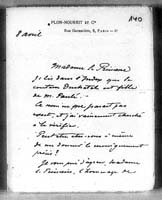 PLON-NOURRIT ET Cie
Rue Garancière, 8, PARIS-6e
8 avril
Madame la Princesse
Je lis dans l'Index que la
comtesse est fille
de M.
Ce nom ne me paraît pas
exact, et j'ai vainement cherché
à le vérifier.
Peut-être -vous à même
de me donner le renseignement
précis ?
Je vous prie d'agréer, madame
la Princesse, l'hommage de